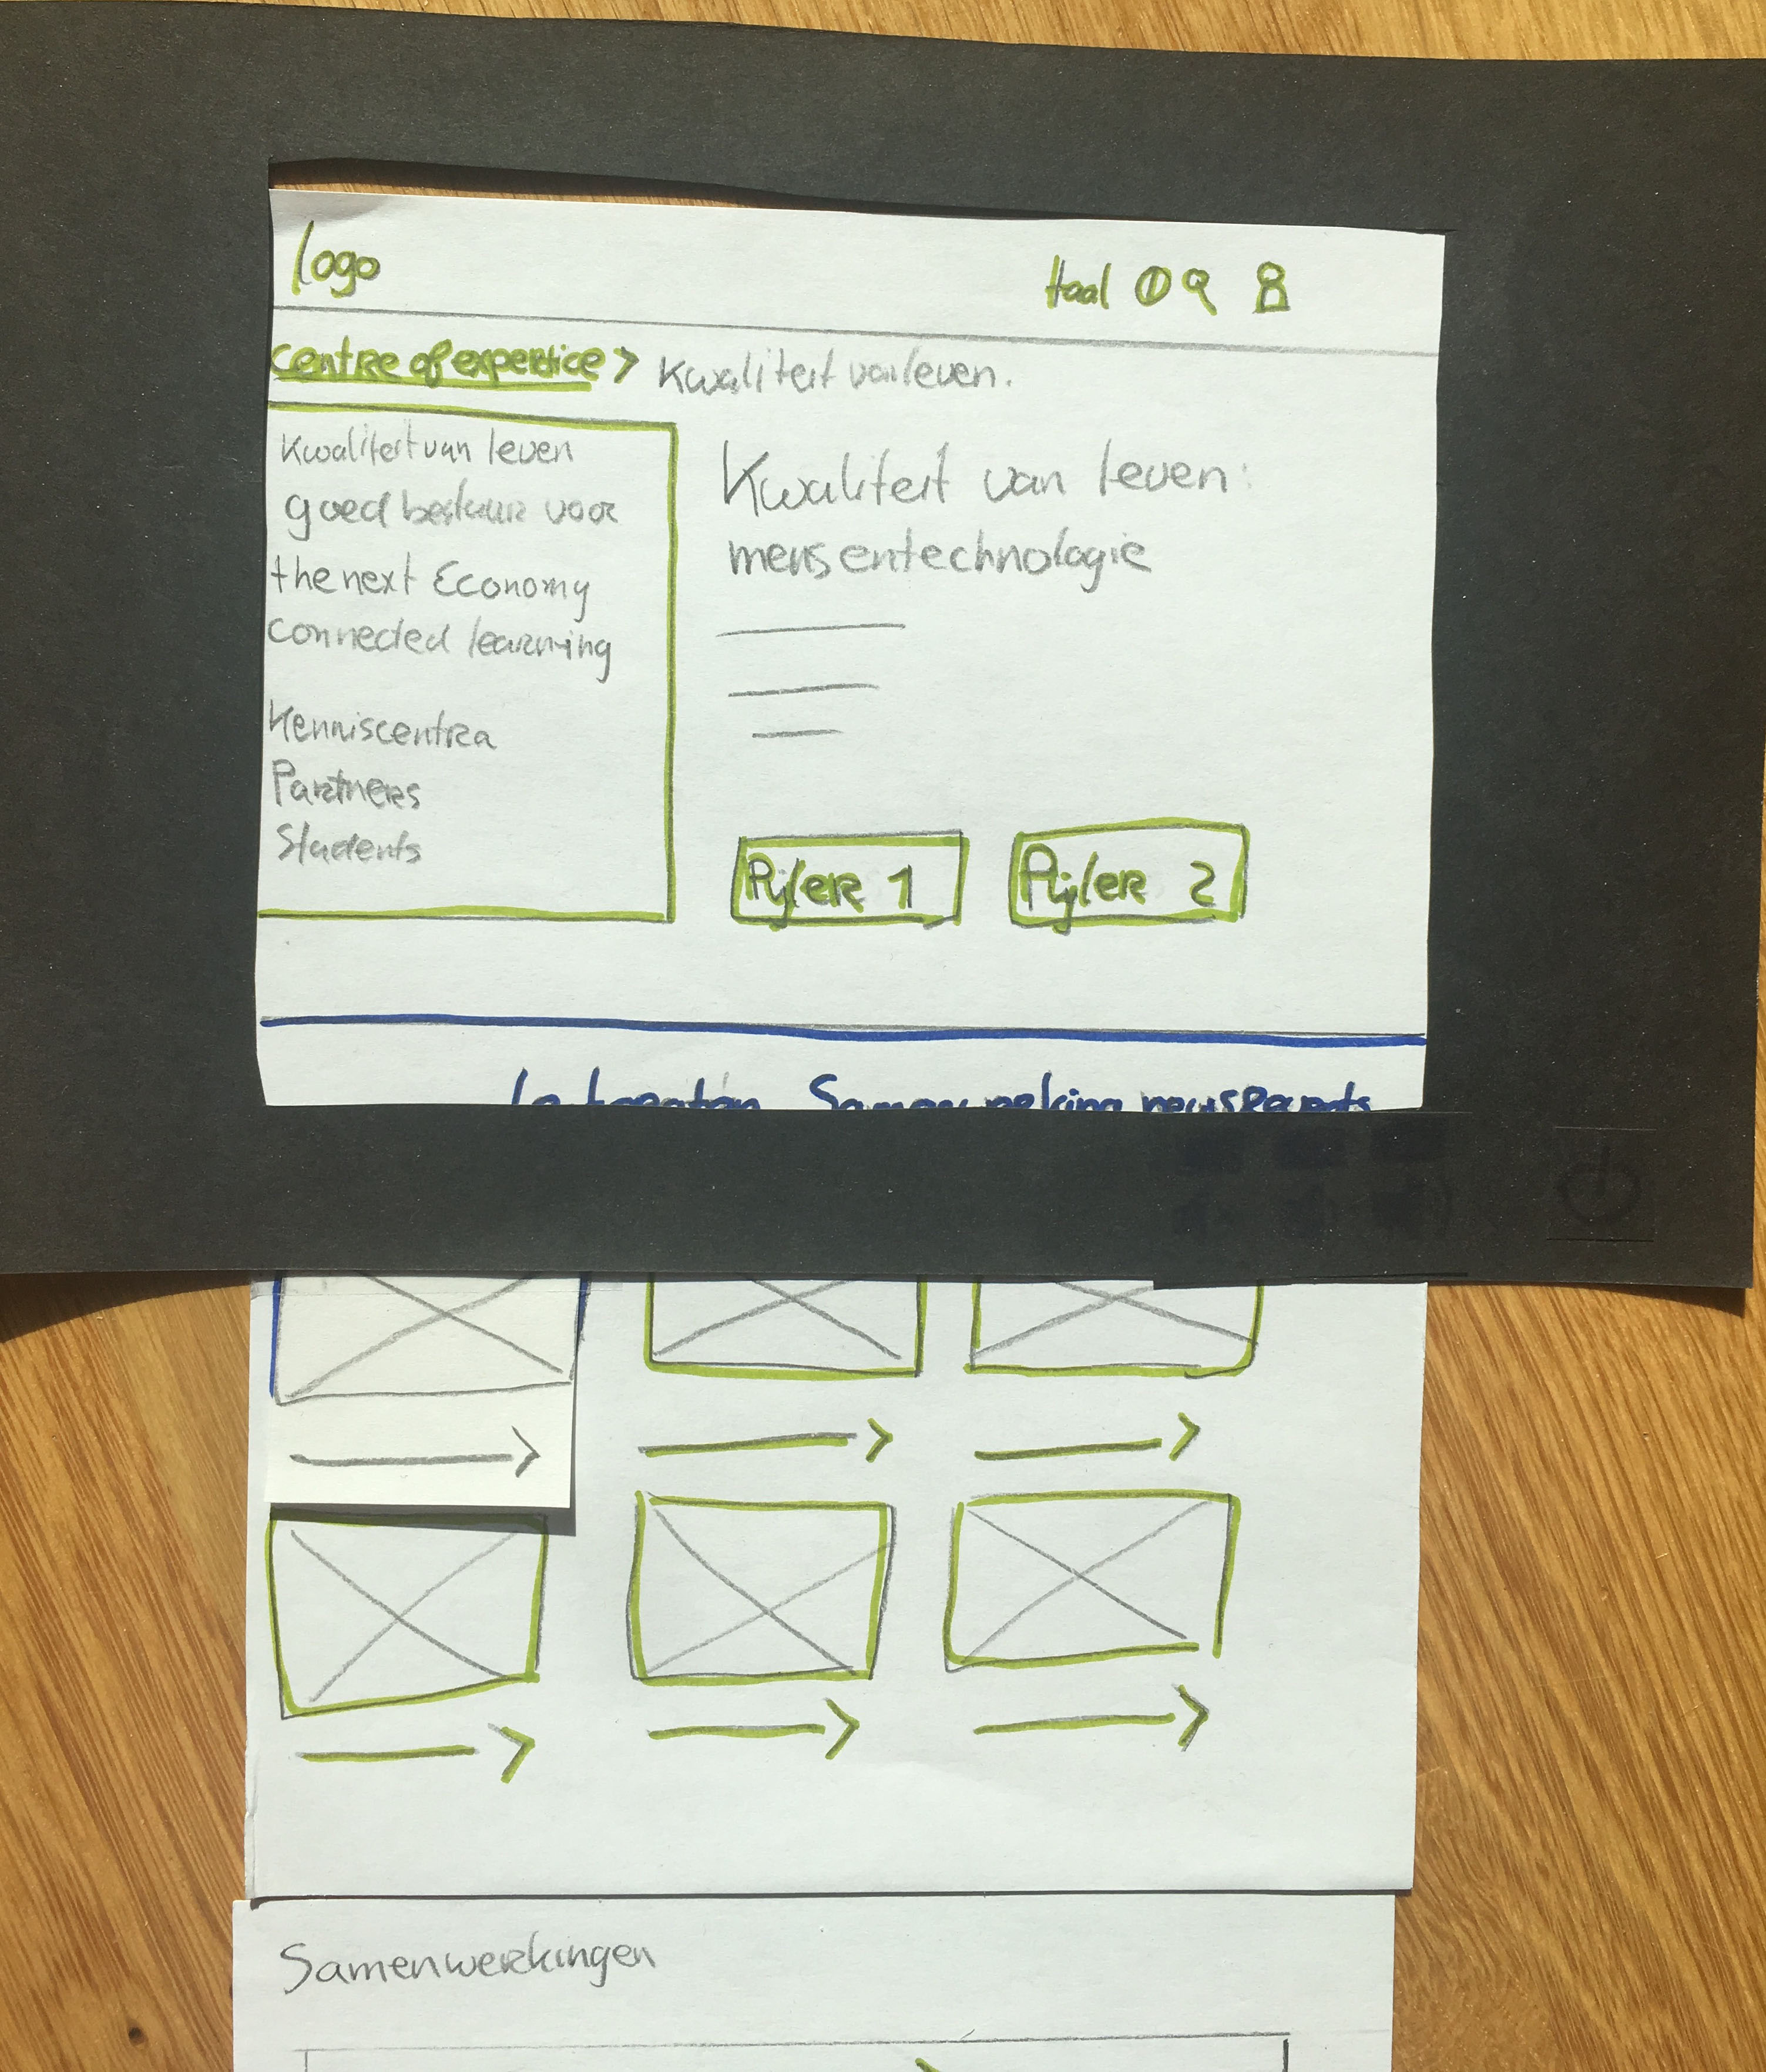 logo
taal
centre of expertice > Kwaliteit van leven.
Kwaliteit van leven
goed bestuur voor
the next Economy
connected learning
Kenniscentra
Partners
Students
Kwaliteit van leven:
mensentechnologie
Pijler 1
Pijler 2
Samenwerking news&events
Samenwerkingen